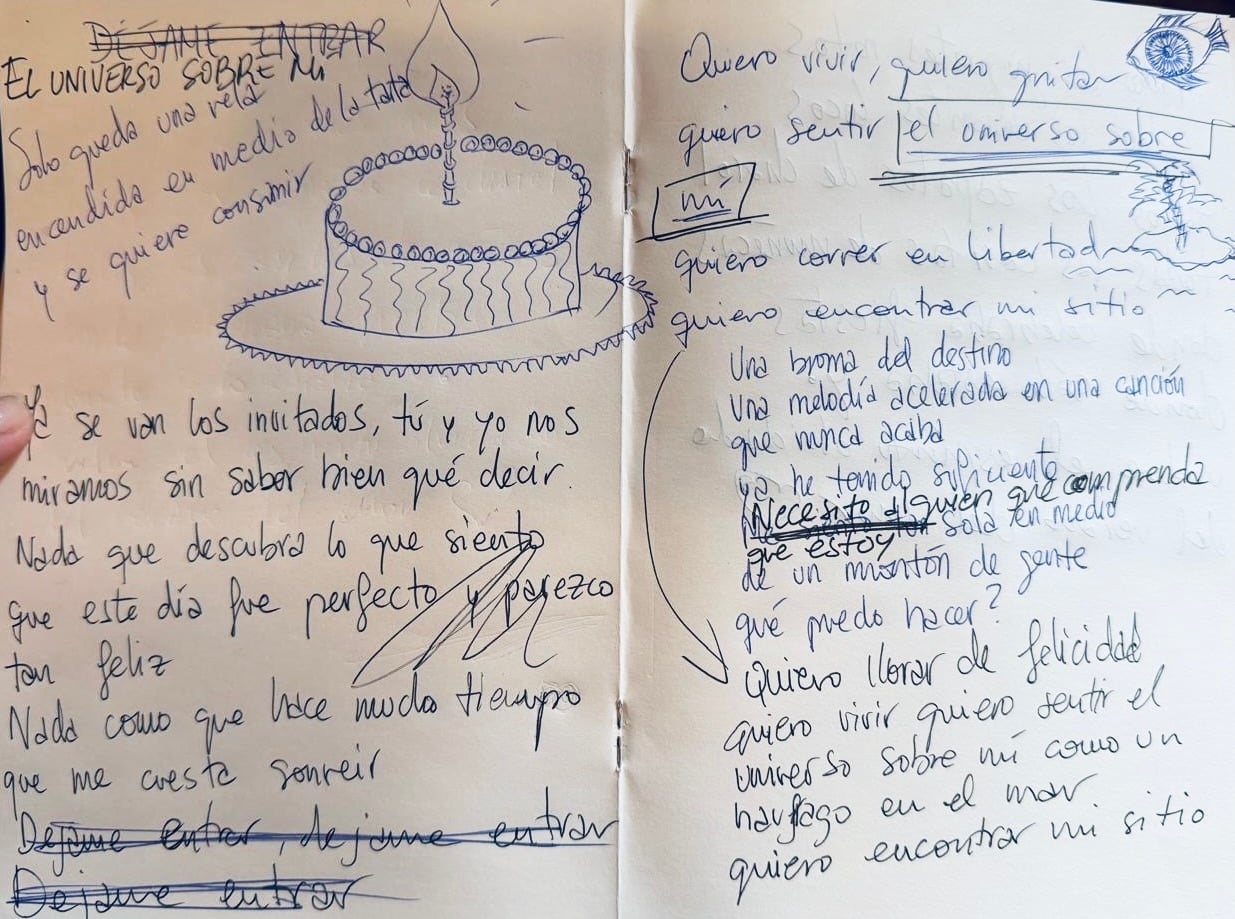 DÉJAME ENTRAR
EL UNIVERSO SOBRE MÍ
Solo queda una vela
encendida en medio de la tarta
y se quiere consumir
Ya se van los invitados, tú y yo nos
miramos sin saber bien qué decir.
Nada que descubra lo que siento
que este día fue perfecto y parezco
tan feliz
Nada como que hace mucho tiempo
que me cuesta sonreir
Dejame entrar, dejame entrar
Dejame entrar
Quiero vivir, quiero gritar
quiero sentir el universo sobre
mí
quiero correr en libertad
quiero encontrar mi sitio
Una broma del destino
Una melodía acelerada en una canción
que nunca acaba
ya he tenido suficiente
Necesito alguien que comprenda
que estoy sola en medio
de un montón de gente
qué puedo hacer?
Quiero llorar de felicidad
quiero vivir quiero sentir el
universo sobre mí como un
naufrago en el mar
quiero encontrar mi sitio